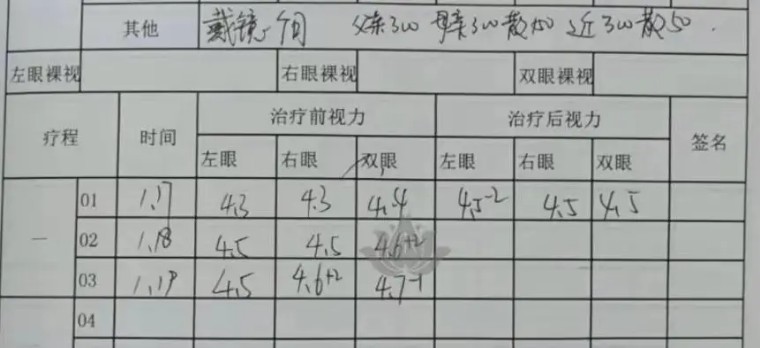 其他 戴镜一个月 父亲300 母亲300散150 近300散50.
左眼裸视 右眼裸视 双眼裸视
疗程 时间 治疗前视力 治疗后视力 签名
左眼 右眼 双眼 左眼 右眼 双眼
一 01 1.17 4.3 4.3 4.4 4.5-2 4.5 4.5
02 1.18 4.5 4.5 4.6+2
03 1.19 4.5 4.6+2 4.7-1
04